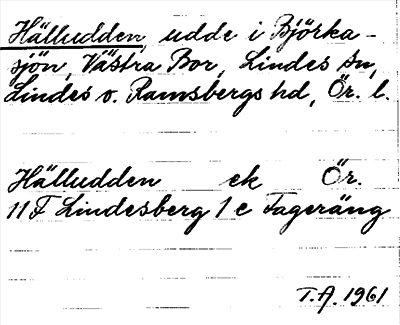 Hälludden, udde i Björka-
sjön, Västra Bor, Lindes sn,
Lindes o. Ramsbergs hd, Ör. l.
Hälludden ek Ör.
11 F Lindesberg 1 e Fageräng
T.A. 1961